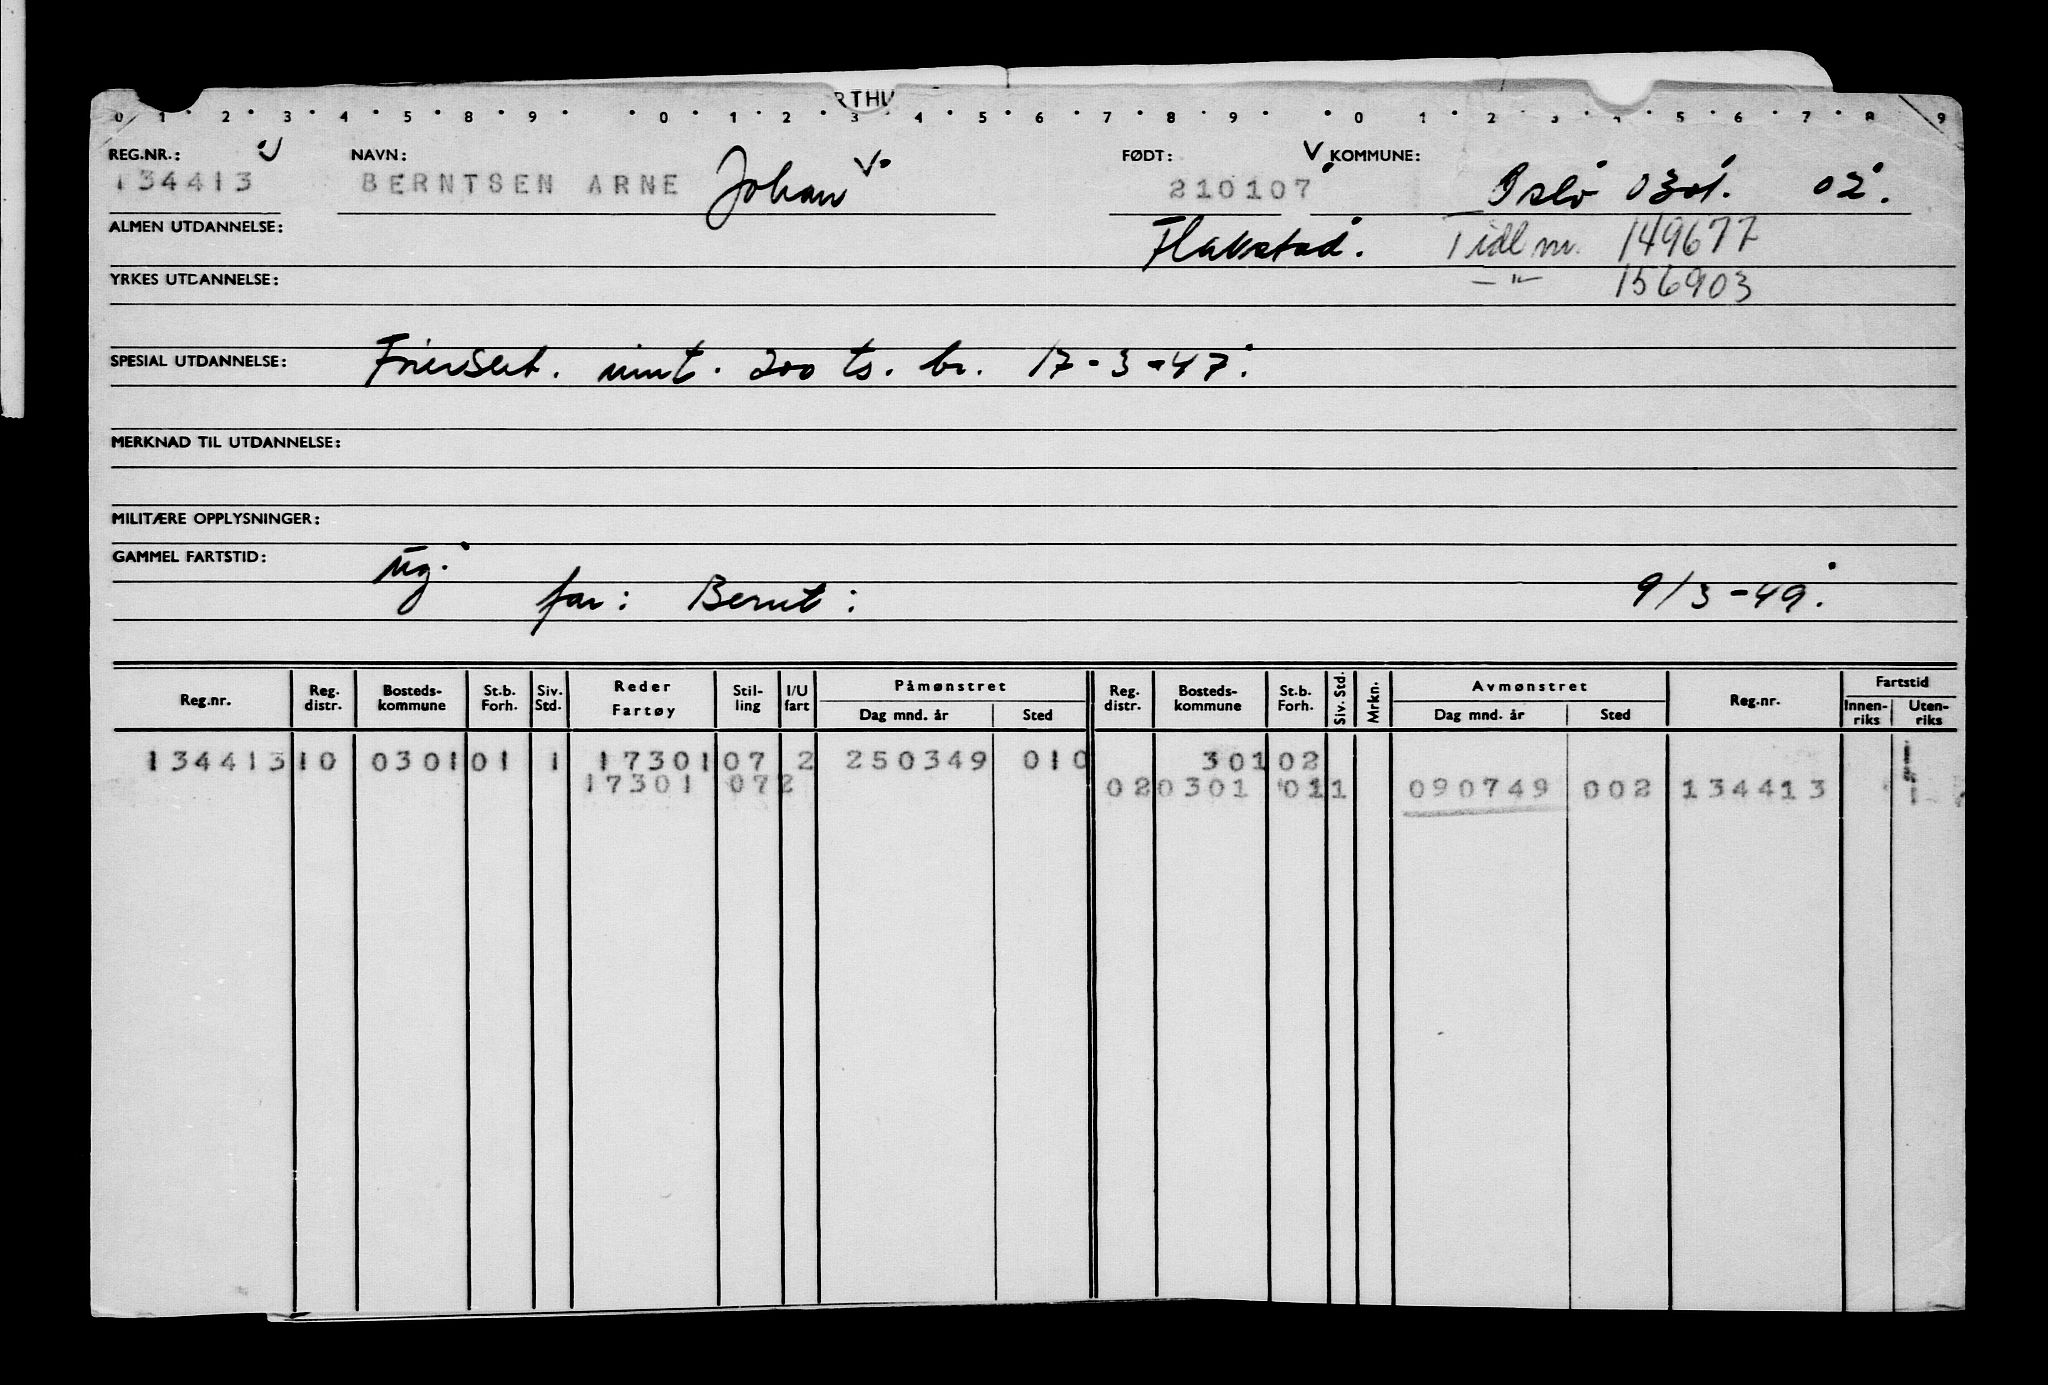 RTHU
0 1 2 3 4 5 8 9 0 1 2 3 4 5 6 7 8 9 0 1 2 3 4 5 6 7 8 9
REG.NR.: NAVN: FØDT: V KOMMUNE:
134413 BERNTSEN ARNE Johan V 210107 Oslo 0301. 02.
ALMEN UTDANNELSE: Flakstad. Tidl nr. 149677
YRKES UTDANNELSE: — " — 156903
SPESIAL UTDANNELSE: 200 ts. br. 17-3-47.
MERKNAD TIL UTDANNELSE:
MILITÆRE OPPLYSNINGER:
GAMMEL FARTSTID: ug.
far: Bernt: 9/3-49.
Reg.nr. Reg. distr. Bosteds-kommune St.b. Forh. Siv. Std. Reder Fartøy Stil-ling I/U fart Påmønstret Dag mnd. år Sted Reg. distr. Bosteds-kommune St.b. Forh. Siv. Std. Mrkn. Avmønstret Dag mnd. år Sted Reg.nr. Fartstid Innen-riks Uten-riks
134413 10 0301 01 1 17301 07 2 250349 010 301 02
17301 072 02 0301 011 090749 002 134413